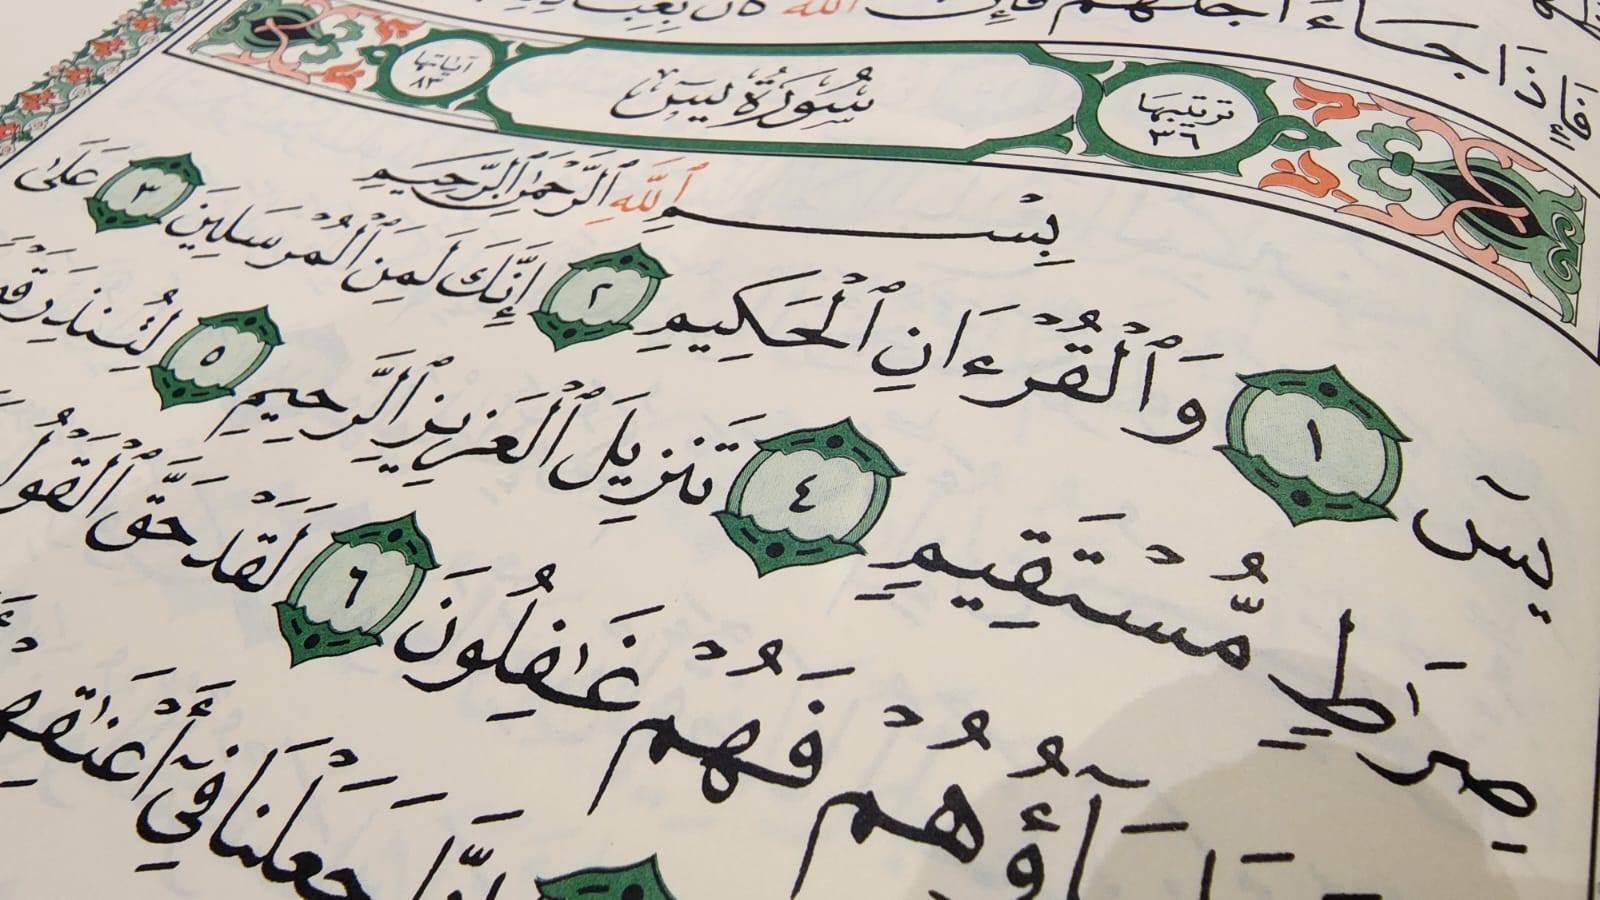 فَإِذَا جَآءَ أَجَلُهُمْ فَإِنَّ ٱللَّهَ كَانَ بِعِبَادِهِۦ
ترتيبها ٣٦ سُورَةُ يسٓ آياتها ٨٣
بِسْمِ ٱللَّهِ ٱلرَّحْمَٰنِ ٱلرَّحِيمِ
يسٓ ١ وَٱلْقُرْءَانِ ٱلْحَكِيمِ ٢ إِنَّكَ لَمِنَ ٱلْمُرْسَلِينَ ٣ عَلَىٰ
صِرَٰطٍ مُّسْتَقِيمٍ ٤ تَنزِيلَ ٱلْعَزِيزِ ٱلرَّحِيمِ ٥ لِتُنذِرَ
ءَابَآؤُهُمْ فَهُمْ غَٰفِلُونَ ٦ لَقَدْ حَقَّ ٱلْقَوْلُ
إِنَّا جَعَلْنَا فِىٓ أَعْنَٰقِهِمْ